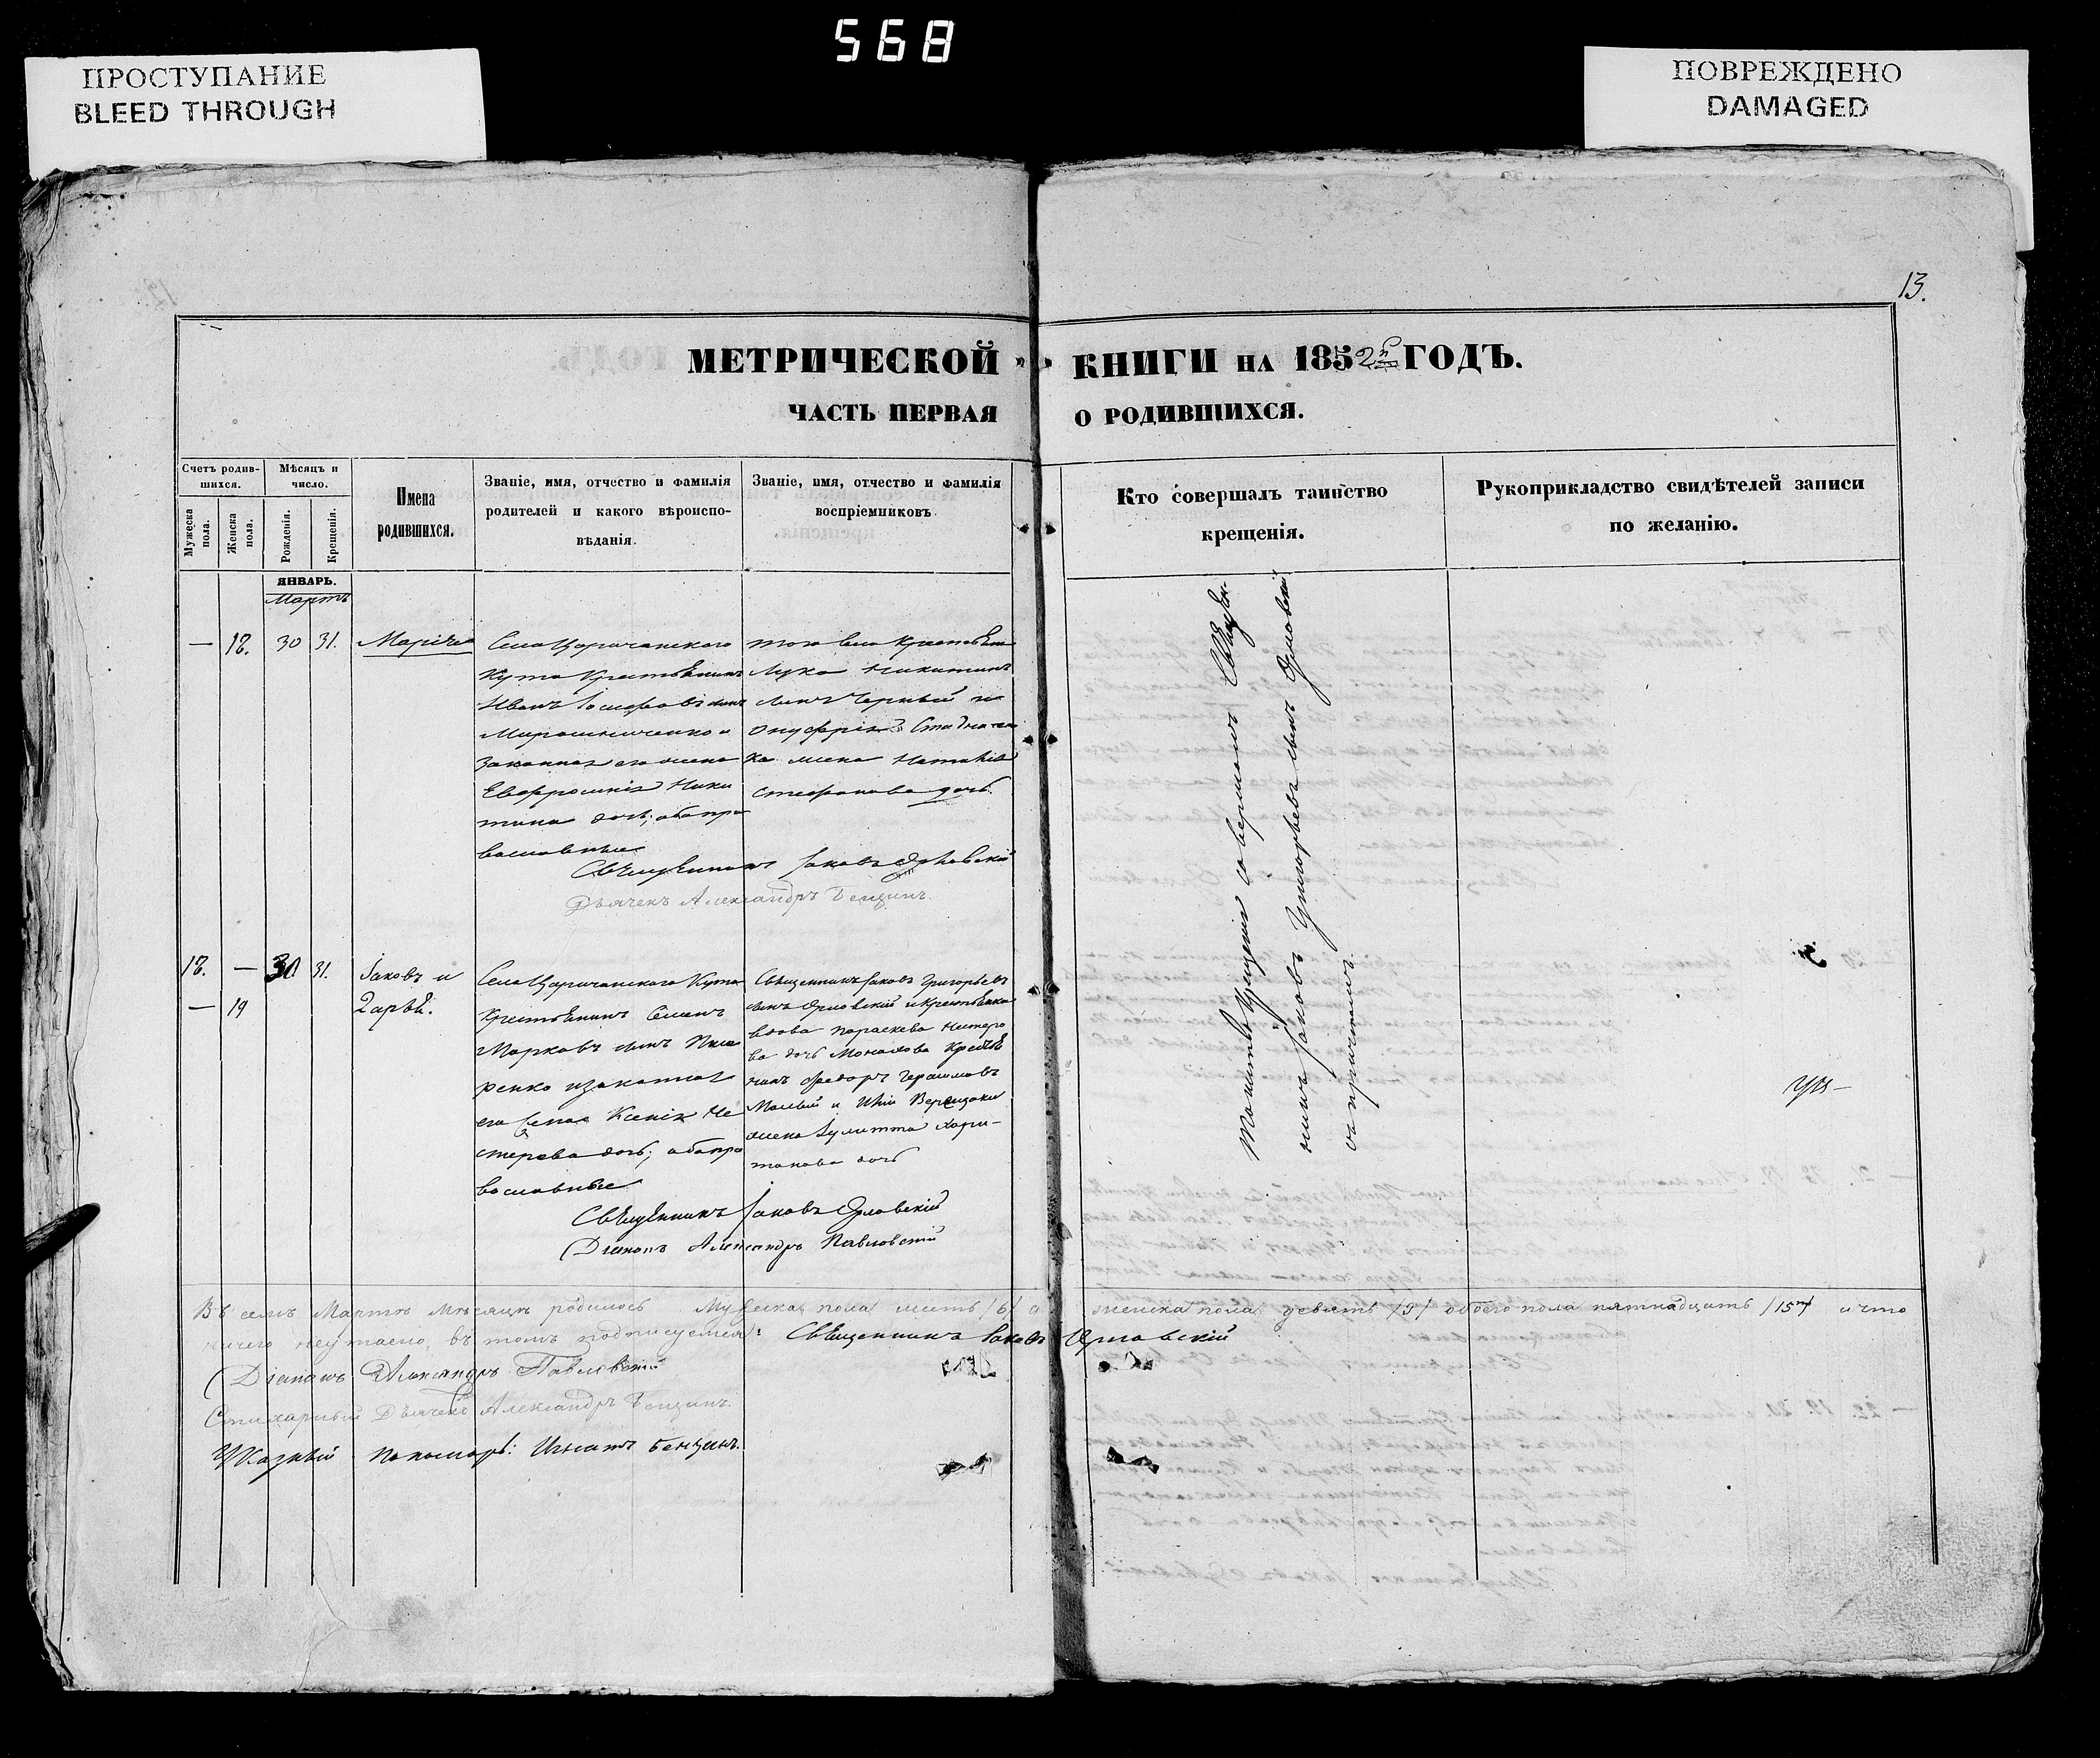 568
ПРОСТУПАНИЕ
BLEED THROUGH
ПОВРЕЖДЕНО
DAMAGED
13.
МЕТРИЧЕСКОЙ КНИГИ НА 1852й ГОДЪ.
ЧАСТЬ ПЕРВАЯ О РОДИВШИХСЯ.
Счетъ родившихся.
Мужеска пола.
Женска пола.
Мѣсяцъ и число.
Рожденія.
Крещенія.
Имена родившихся.
Званіе, имя, отчество и фамилія
родителей и какого вѣроиспо-
вѣданія.
Званіе, имя, отчество и фамилія
воспріемниковъ.
Кто совершалъ таинство
крещенія.
Рукоприкладство свидѣтелей записи
по желанію.
ЯНВАРЬ.
Мартъ
— 18. 30 31. Марія
Села Царичанского
Кута Крестьянинъ
Иванъ Іосифовъ сынъ
Мирошниченко и
законная его жена
Евфросинія Ники
тина дочь; оба пра
вославные
того села Крестьянинъ
Лука Никитинъ
сынъ Черный и
Онуфрія
ка жена Наталія
Стефанова дочь.
Священникъ Іаковъ Орловскій
Дьячекъ Александръ Бенцинъ.
18. — 30 31. Іаковъ и
— 19 Дарья.
Села Царичанского Кута
Крестьянинъ Семенъ
Марковъ сынъ
ренко и законная
его жена Ксенія Не
стерова дочь; оба пра
вославные
Священникъ Іаковъ Григорьевъ
сынъ Орловскій и Крестьянка
вдова Параскева Нестеро
ва дочь Монахова Крестья
нинъ Федоръ Герасимовъ
и
жена Іулитта Хари-
тонова дочь
Священникъ Іаковъ Орловскій
Діаконъ Александръ Павловскій
Молитво Крещенія совершалъ Священ
никъ Іаковъ Григорьевъ сынъ Орловскій
съ причтомъ.
Въ семъ Мартѣ мѣсяцѣ родилось Мужеска пола шесть /6/ а женска пола девять /9/ обоего пола пятнадцать /15ть/ и что
ничего не утаено, въ томъ подписуемся: Священникъ Іаковъ Орловскій
Діаконъ Александръ Павловскій
Стихарный Дьячекъ Александръ Бенцинъ.
Указный пономарь: Игнатъ Бенцинъ.